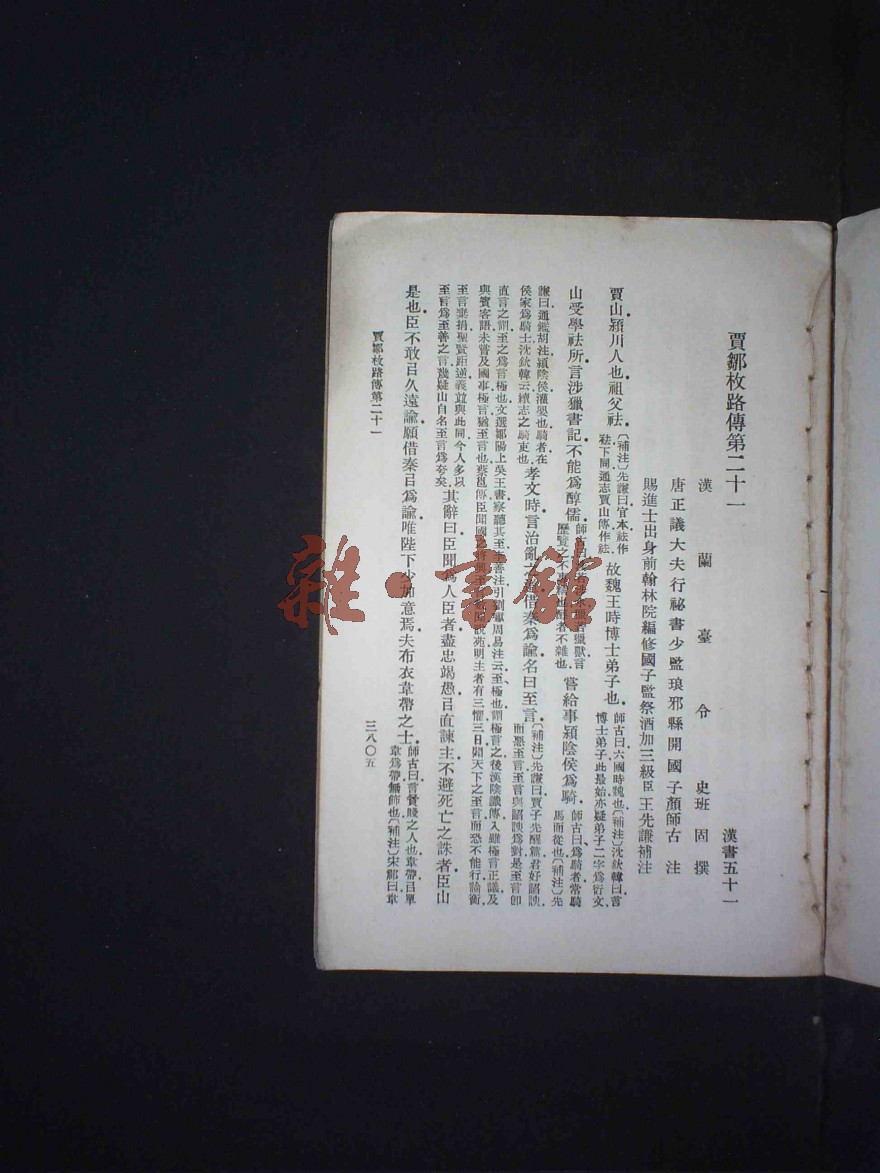 賈鄒枚路傳第二十一
漢書五十一
漢蘭臺令史班固撰
唐正議大夫行祕書少監琅邪縣開國子顏師古注
賜進士出身前翰林院編修國子監祭酒加三級臣王先謙補注
賈山潁川人也祖父袪。〔補注〕先謙曰官本袪作祛下同通志賈山傳作祛。故魏王時博士弟子也。師古曰六國時魏也〔補注〕沈欽韓曰言博士弟子此最始亦疑弟子二字爲衍文
山受學袪所言涉獵書記不能爲醇儒。歷覽之不雜也。嘗給事潁陰侯爲騎。師古曰爲騎者常騎馬而從也〔補注〕先
謙曰通鑑胡注潁陰侯灌嬰也騎者在侯家爲騎士沈欽韓云續志之騎吏也。孝文時言治亂之道借秦爲諭名曰至言。〔補注〕先謙曰賈子先醒篇君好諂諛而惡至言至言與諂諛爲對是至言卽
直言之謂至之爲言極也文選鄒陽上吳王書察聽其至李善注引劉瓛周易注云至極也謂極言之後漢陰識傳入雖極言正議及
與賓客語未嘗及國事極言猶至言也蔡邕傳臣聞國之將興至言數聞說苑明主者有三懼三曰聞天下之至言而恐不能行論衡
至言棄捐聖賢距逆義竝與此同今人多以至言爲至善之言幾疑山自名至言爲夸矣。其辭曰臣聞爲人臣者盡忠竭愚㠯直諫主不避死亡之誅者臣山
是也臣不敢㠯久遠諭願借秦㠯爲諭唯陛下少加意焉夫布衣韋帶之士。師古曰言貧賤之人也韋帶㠯單韋爲帶無飾也〔補注〕宋祁曰韋
賈鄒枚路傳第二十一
三八〇五
雜·書館